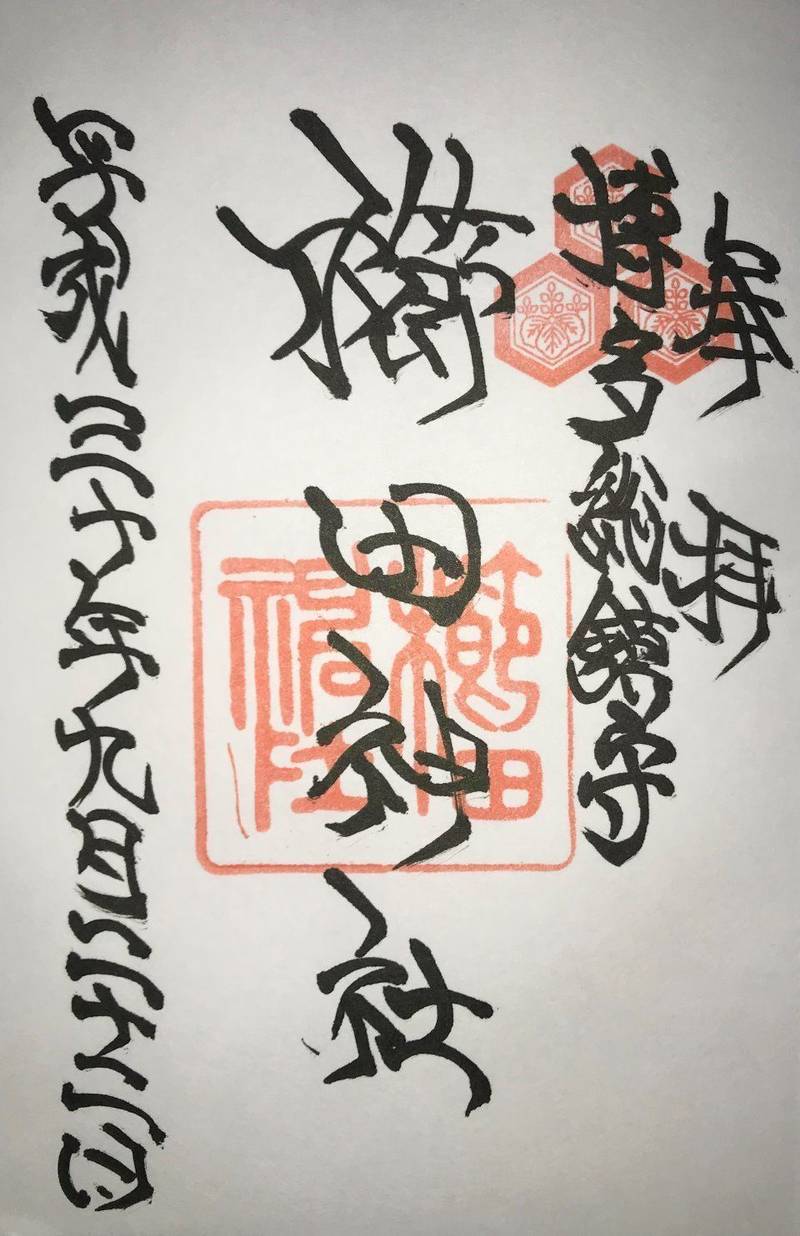 奉拝
博多総鎮守
櫛田神社
櫛田
神社
平成三十年九月二十二日